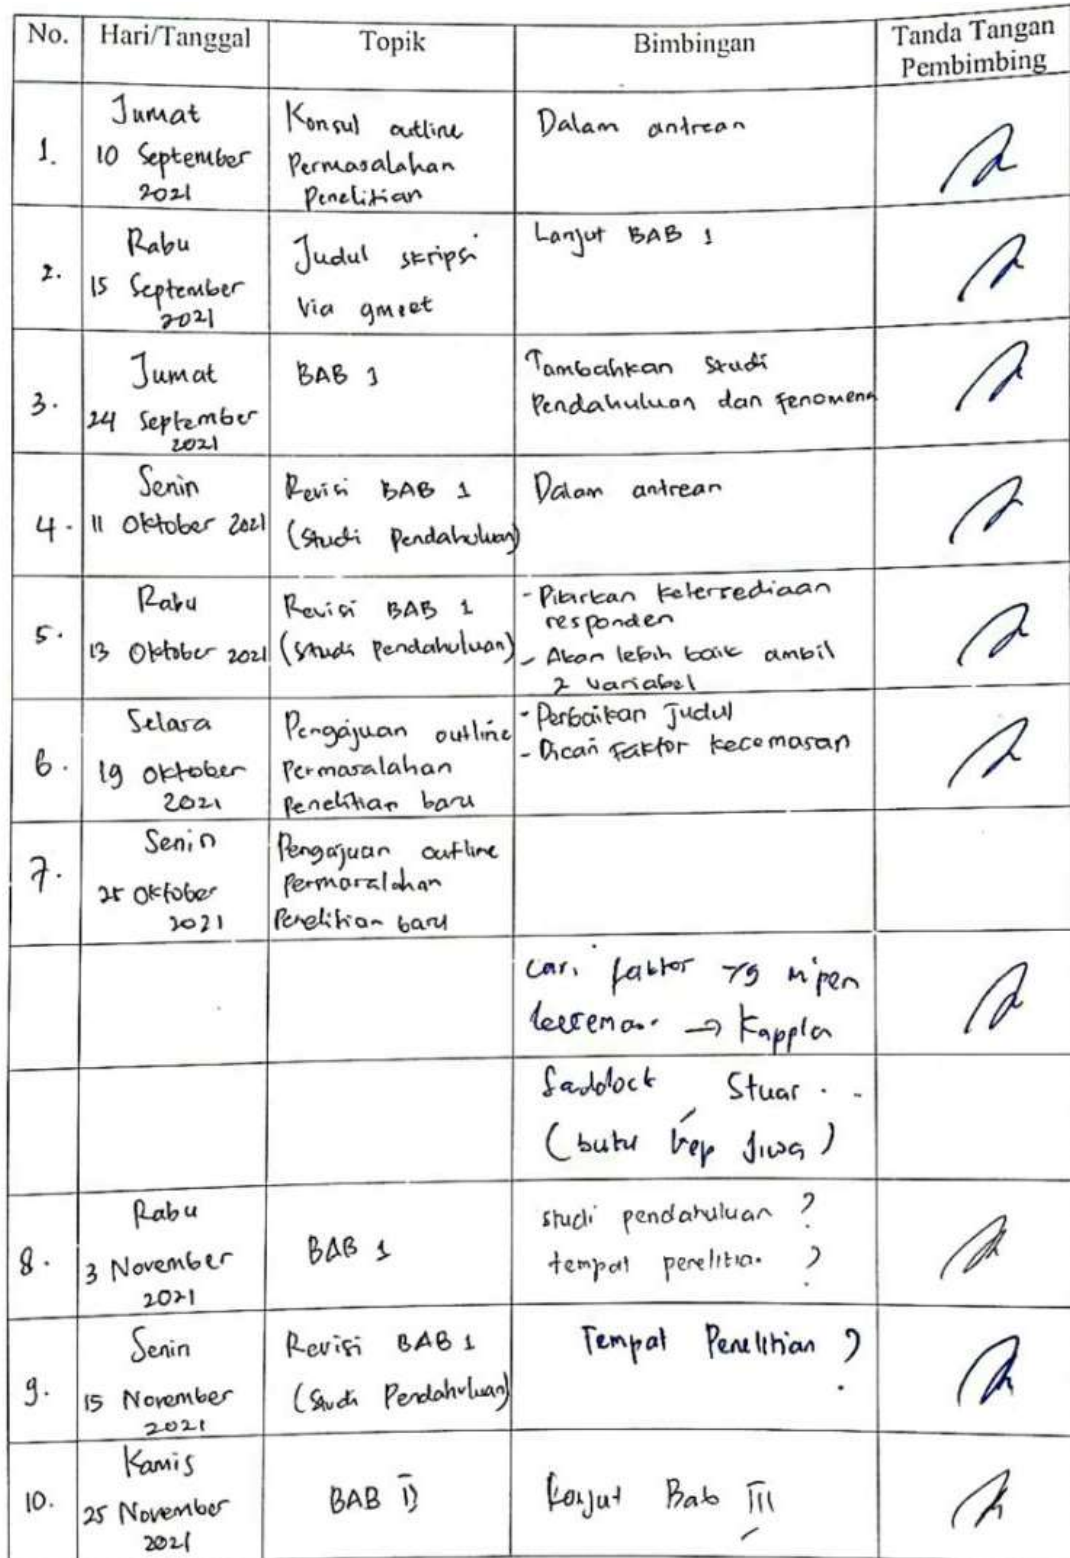 No. Hari/Tanggal Topik Bimbingan Tanda Tangan
Pembimbing
1.
Jumat
10 September
2021
Konsul outline
Permasalahan
Penelitian
Dalam antrean
2.
Rabu
15 September
2021
Judul skripsi
Via gmeet
Lanjut BAB 1
3.
Jumat
24 September
2021
BAB 1
Tambahkan Studi
Pendahuluan dan Fenomena
4.
Senin
11 Oktober 2021
Revisi BAB 1
(Studi Pendahuluan)
Dalam antrean
5.
Rabu
13 Oktober 2021
Revisi BAB 1
(Studi Pendahuluan)
- Pikirkan ketersediaan
responden
- Akan lebih baik ambil
2 variabel
6.
Selasa
19 Oktober
2021
Pengajuan outline
Permasalahan
Penelitian baru
- Perbaikan Judul
- Dicari Faktor kecemasan
7.
Senin
25 Oktober
2021
Pengajuan outline
Permasalahan
Penelitian baru
Cari faktor yg
→ Kapplan
Saddock Stuar..
(buku kep Jiwa)
8.
Rabu
3 November
2021
BAB 1
studi pendahuluan ?
tempat penelitian ?
9.
Senin
15 November
2021
Revisi BAB 1
(Studi Pendahuluan)
Tempat Penelitian ?
10.
Kamis
25 November
2021
BAB II
Lanjut Bab III